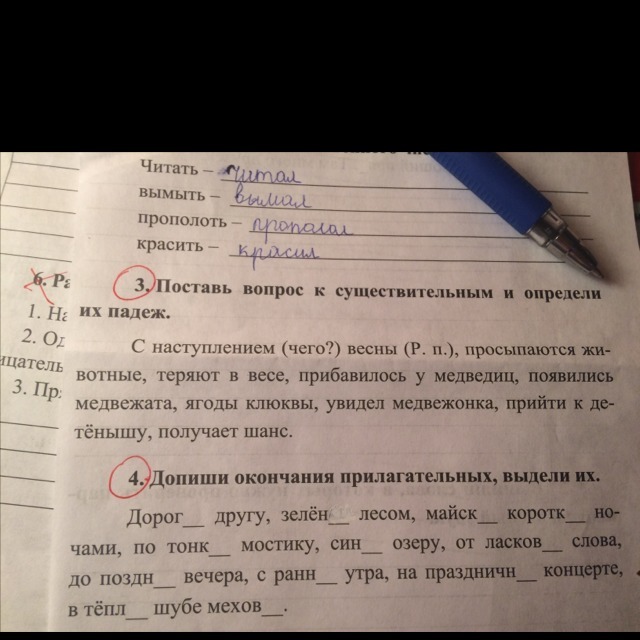 Читать – читал
вымыть – вымал
прополоть – прополол
красить – красил
6. Ра
1. На
2. Од
ицатель
3. Пр
3. Поставь вопрос к существительным и определи
их падеж.
С наступлением (чего?) весны (Р. п.), просыпаются жи-
вотные, теряют в весе, прибавилось у медведиц, появились
медвежата, ягоды клюквы, увидел медвежонка, прийти к де-
тёнышу, получает шанс.
4. Допиши окончания прилагательных, выдели их.
Дорог__ другу, зелён__ лесом, майск__ коротк__ но-
чами, по тонк__ мостику, син__ озеру, от ласков__ слова,
до поздн__ вечера, с ранн__ утра, на праздничн__ концерте,
в тёпл__ шубе мехов__.